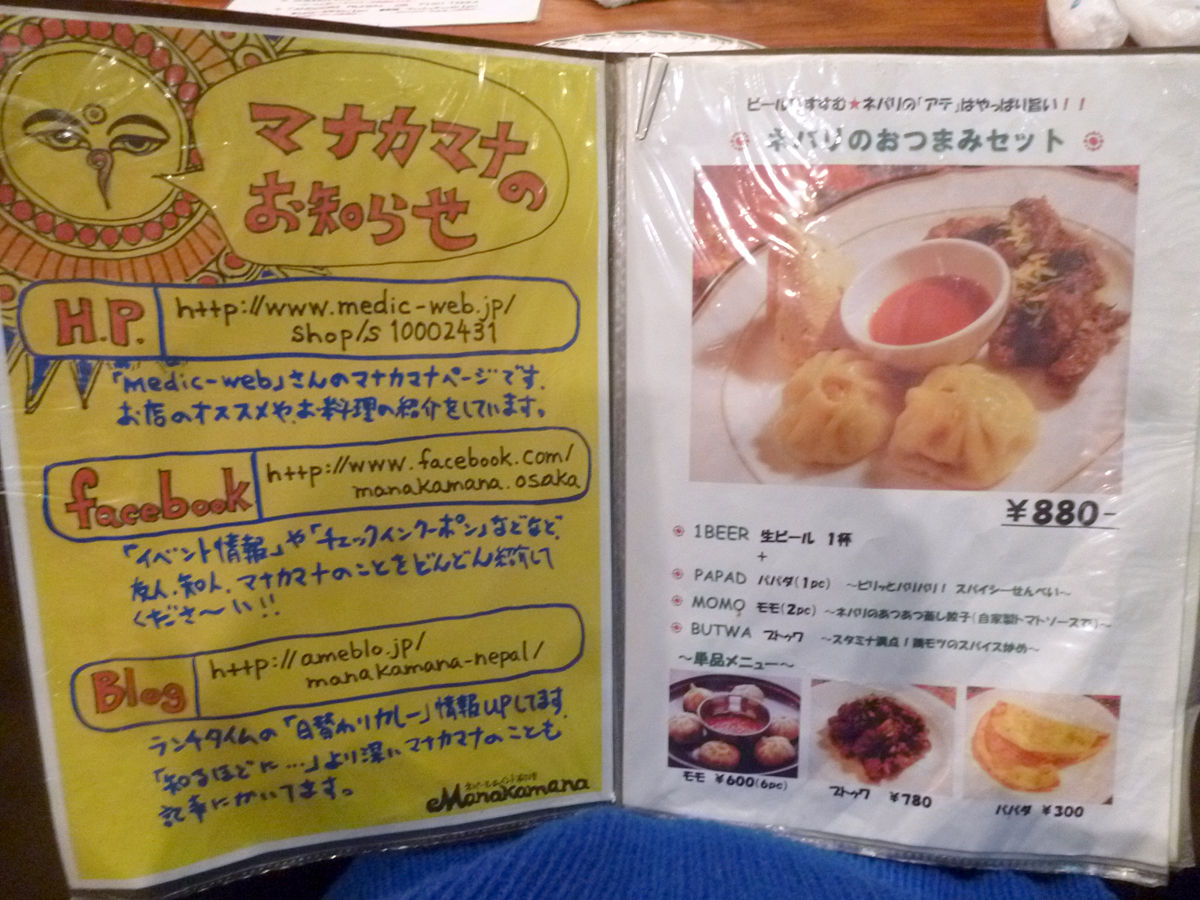 マナカマナの
お知らせ
H.P.
http://www.medic-web.jp/
shop/s 10002431
「medic-web」さんのマナカマナページです.
お店のオススメや、お料理の紹介をしています。
facebook
http://www.facebook.com/
manakamana.osaka
「イベント情報」や「チェックインクーポン」などなど.
友人、知人、マナカマナのことをどんどん紹介して
くださ〜い!!
Blog
http://ameblo.jp/
manakamana-nepal/
ランチタイムの「日替わりカレー」情報upしてます.
「知るほどに…」より深いマナカマナのことも
記事にかいてます。
Manakamana
ビールがすすむ★ネパリの「アテ」はやっぱり旨い!!
ネパリのおつまみセット
¥880-
1BEER 生ビール 1杯
+
PAPAD パパダ(1pc) 〜ピリッとパリパリ! スパイシーせんべい〜
MOMO モモ(2pc) 〜ネパリのあつあつ蒸し餃子(自家製トマトソースで)〜
BUTWA ブトゥワ 〜スタミナ満点!鶏モツのスパイス炒め〜
〜単品メニュー〜
モモ ¥600(6pc)
ブトゥワ ¥780
パパダ ¥300